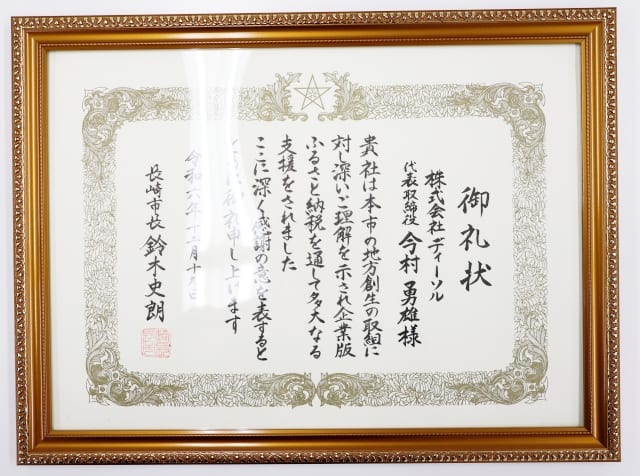 御礼状
株式会社ディーソル
代表取締役 今村 勇雄 様
貴社は本市の地方創生の取組に
対し深いご理解を示され企業版
ふるさと納税を通して多大なる
支援をされました
ここに深く感謝の意を表すると
ともに御礼申し上げます
令和六年十二月十九日
長崎市長 鈴木史朗